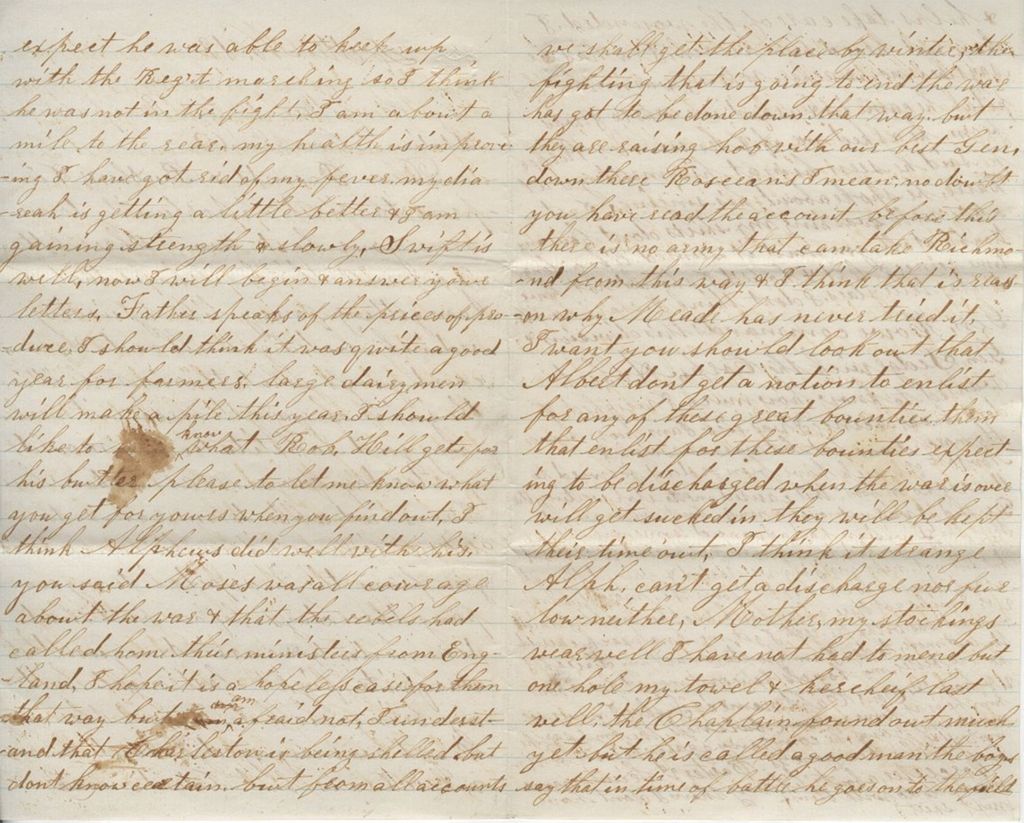 expect he was able to keek up
with the Reg't marching so I think
he was not in the fight, I am about a
mile to the rear, my health is improv-
-ing I have got rid of my fever my dia
-reah is getting a little better & I am
gaining strength & slowly, Swift is
well, now I will begin & answer youre
letters, Father speaks of the prices of pro-
-duce, I should think it was quite a good
year for farmers, large dairymen
will make a pile this year I should
like to know what Rob. Hill gets for
his butter please to let me know what
you get for yours when you find out, I
think Alpheus did well with his,
you said Moses was all courage
about the war & that the rebels had
called home thier ministers from Eng-
-land, I hope it is a hopeless case for them
that way but am afraid not, I underst-
-and that Charleston is being shelled but
dont know certain, but from all accounts
we shall get the place by winter, the
fighting that is going to end the war
has got to be done down that way but
they are raising hob with our best Gen,
down there Rosecans I mean, no doubt
you have read the account before this
there is no army that can take Richmo-
-nd from this way & I think that is reas-
-on why Meade has never tried it,
I want you should look out that
Albert dont get a notion to enlist
for any of these great bounties them
that enlist for these bounties expect-
ing to be discharged when the war is over
will get sucked in they will be kept
their time out, I think it strange
Alph. can't get a discharge nor fur
low neither, Mother, my stockings
wear well I have not had to mend but
one hole my towel & kercheif last
well, the Chaplain found out much
yet but he is called a good man the boys
say that in time of battle he goes on to the field